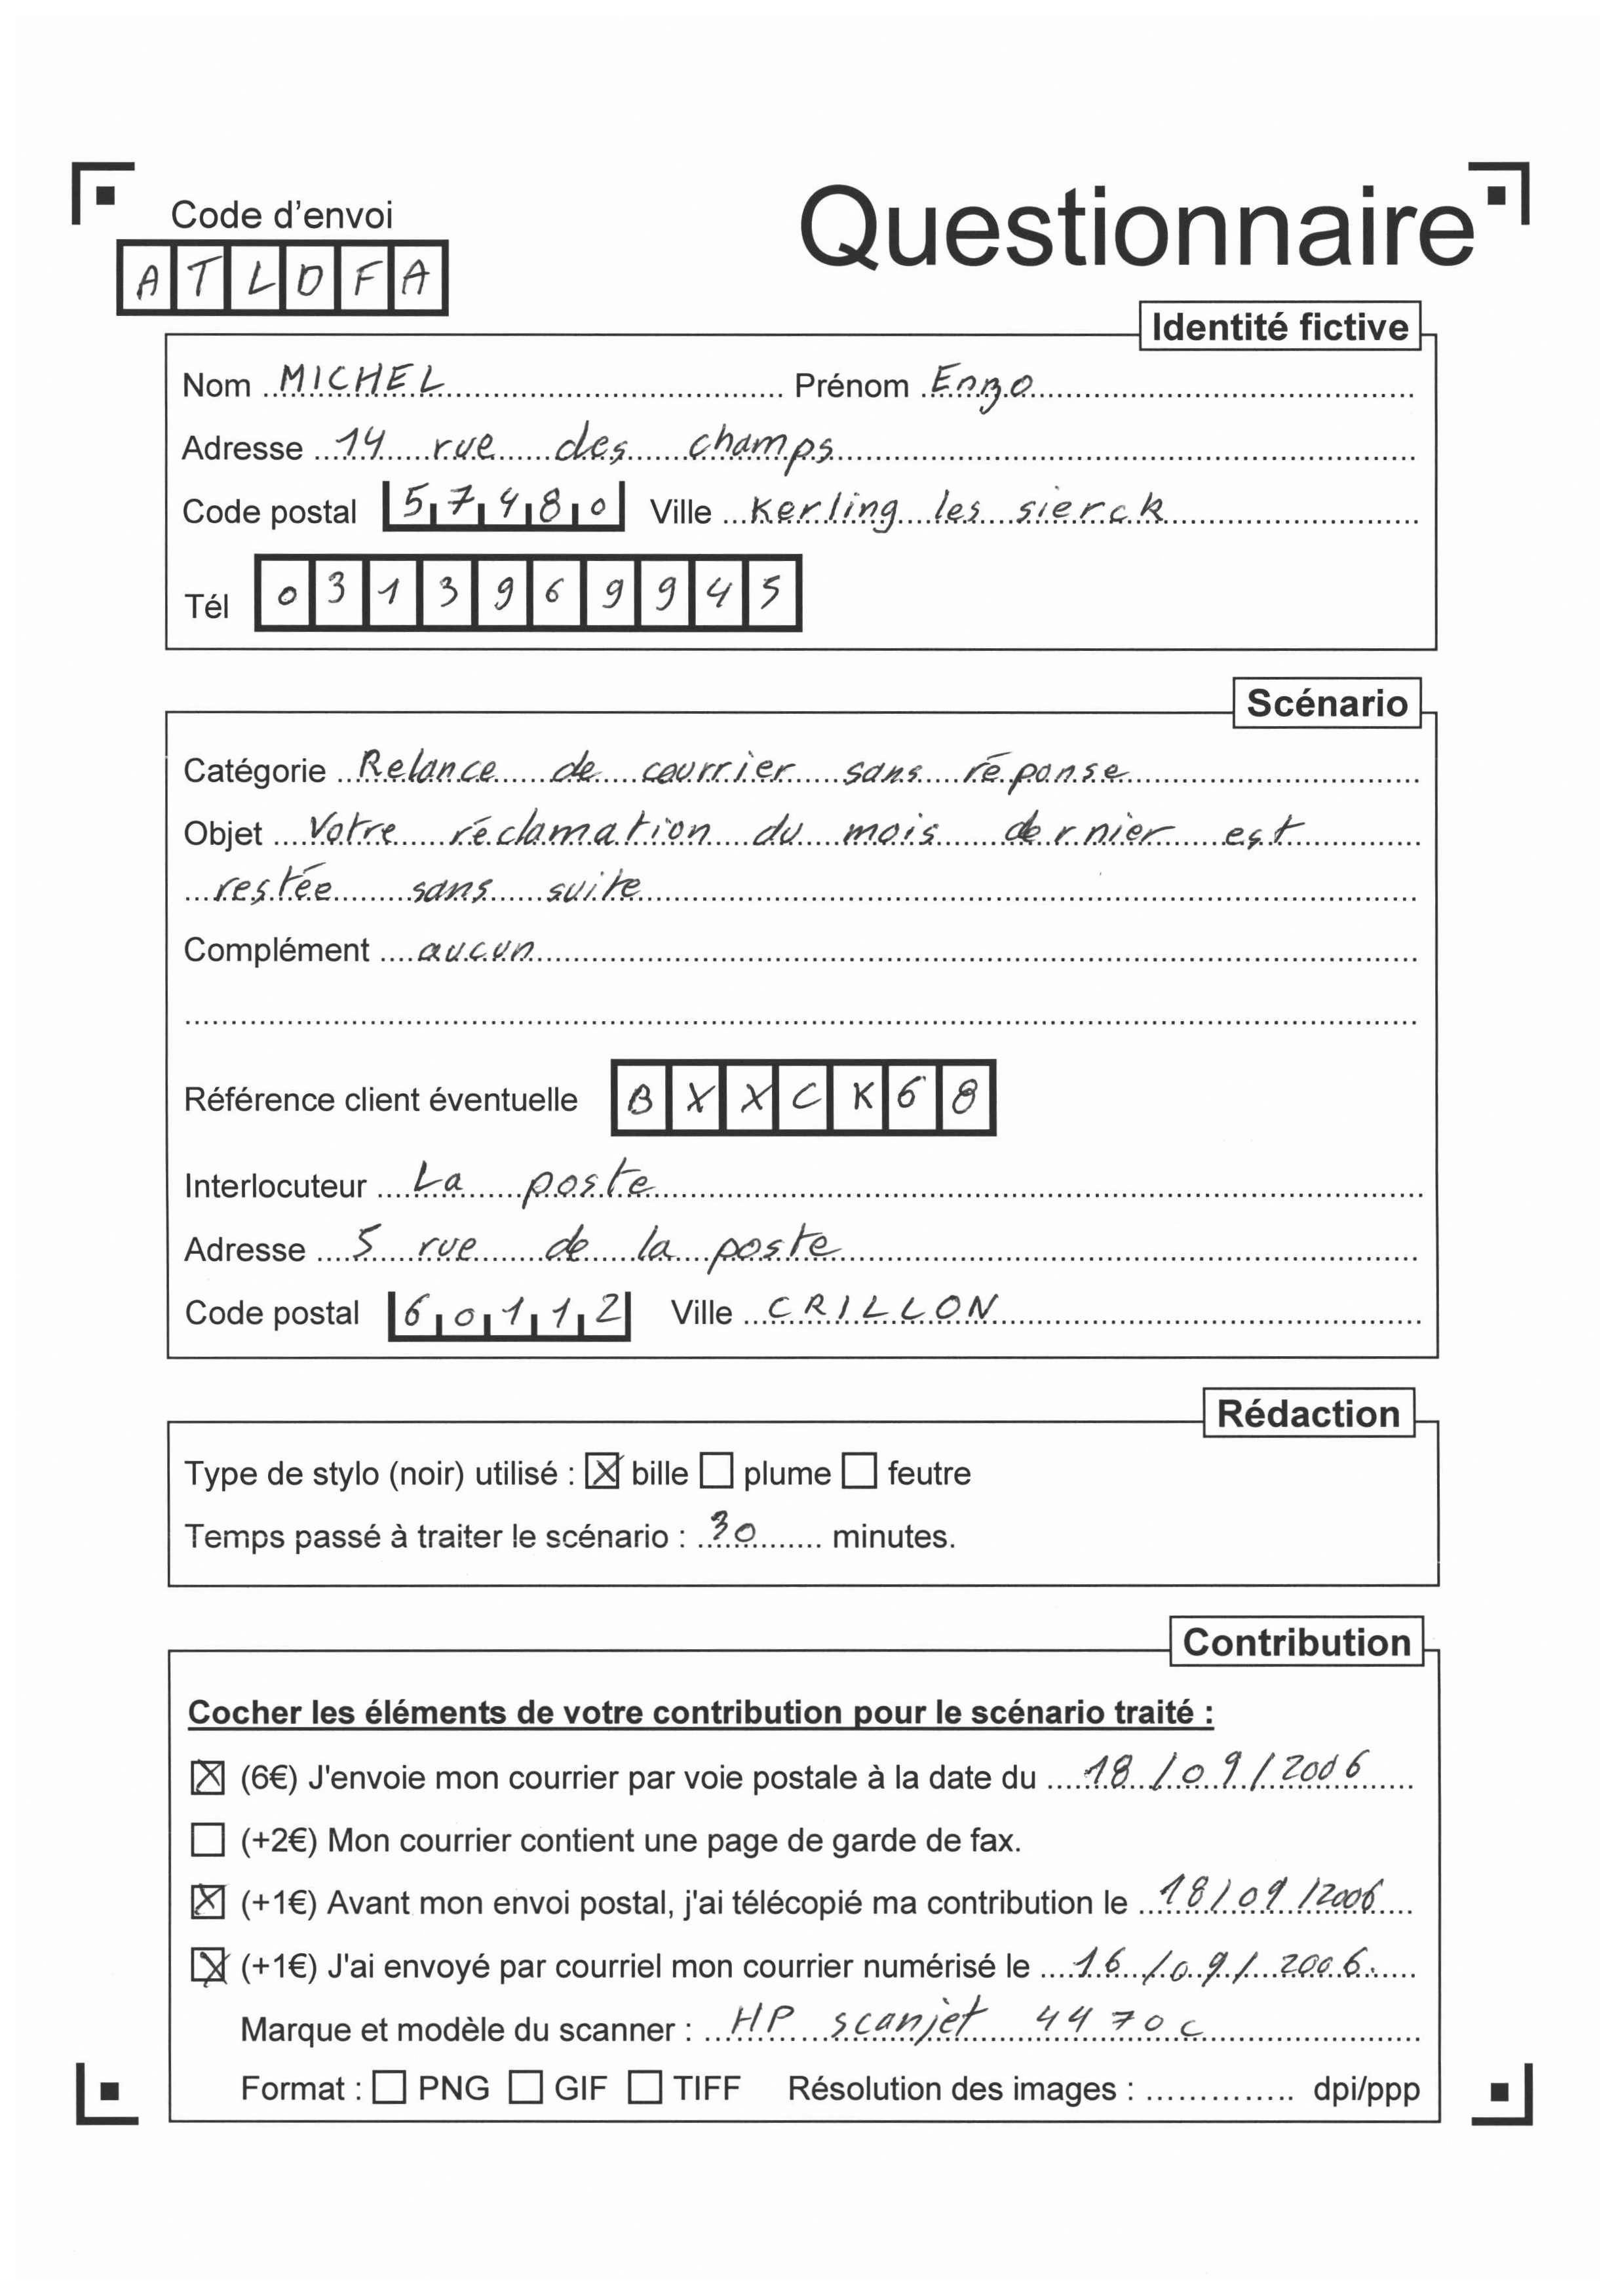 Code d'envoi
Questionnaire
ATLDFA
Identité fictive
Nom MICHEL Prénom Enzo
Adresse 14 rue des champs
Code postal 57480 Ville Kerling les sierck
Tél 0313969945
Scénario
Catégorie Relance de courrier sans réponse
Objet Votre réclamation du mois dernier est
restée sans suite
Complément aucun
Référence client éventuelle BXXCK68
Interlocuteur La poste
Adresse 5 rue de la poste
Code postal 60112 Ville CRILLON
Rédaction
Type de stylo (noir) utilisé : ☒ bille ☐ plume ☐ feutre
Temps passé à traiter le scénario : 30 minutes.
Contribution
Cocher les éléments de votre contribution pour le scénario traité :
☒ (6€) J'envoie mon courrier par voie postale à la date du 18/09/2006
☐ (+2€) Mon courrier contient une page de garde de fax.
☒ (+1€) Avant mon envoi postal, j'ai télécopié ma contribution le 18/09/2006
☒ (+1€) J'ai envoyé par courriel mon courrier numérisé le 16/09/2006.
Marque et modèle du scanner : HP scanjet 4470c
Format : ☐ PNG ☐ GIF ☐ TIFF Résolution des images : .............. dpi/ppp